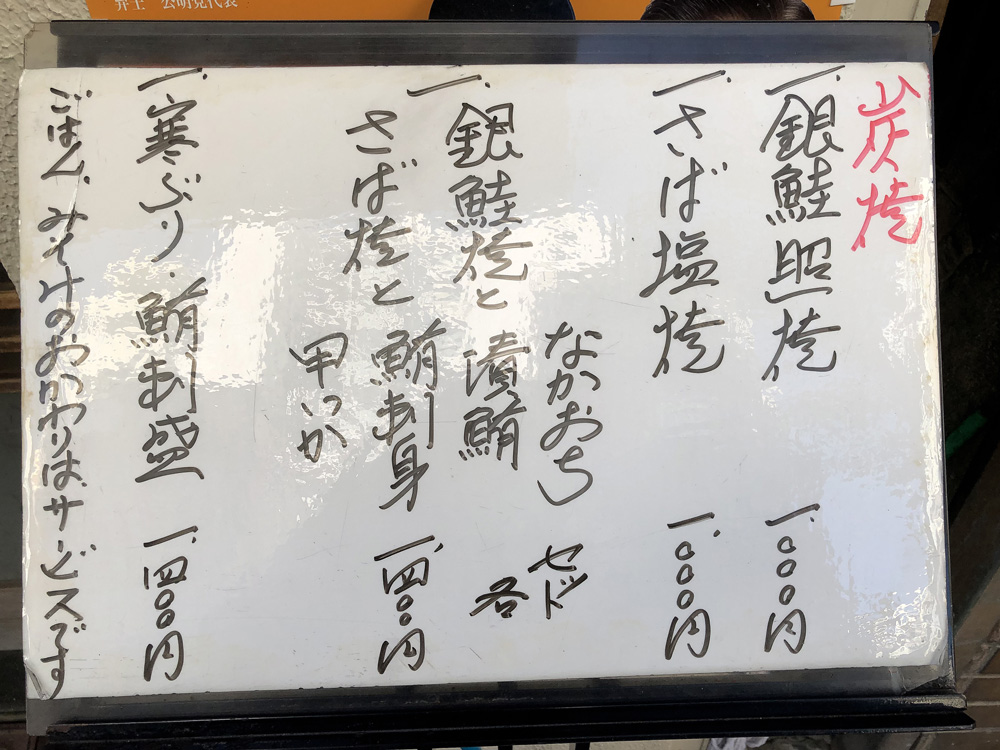 弁士 公明党代表
炭焼
一.銀鮭照焼 一.〇〇〇円
一.さば塩焼 一.〇〇〇円
なかおち セット
一.銀鮭焼と 漬鮪 各
さば焼と 鮪刺身 一.四〇〇円
甲いか
一.寒ぶり.鮪刺盛 一.四〇〇円
ごはん、みそ汁のおかわりはサービスです